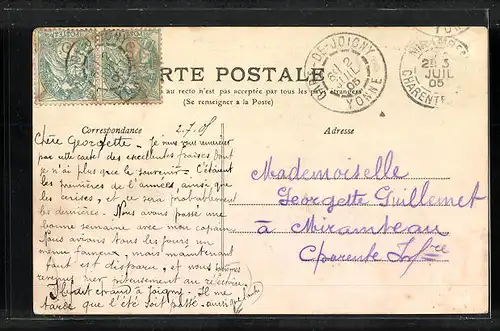 CARTE POSTALE
au recto n'est pas acceptée par tous les pays étrangers
(Se renseigner à la Poste)
Correspondance
Adresse
GARE-DE-JOIGNY
2
JUIL
05
YONNE
MIRAMBEAU
3
JUIL
05
CHARENTE
2.7.05
Chère Georgette - Je vous remercier
par cette carte des excellentes fraises dont
je n'ai plus que le souvenir. C'étaient
les premières de l'année, ainsi que
les cerises, et ce sera probablement
les dernières. Nous avons passé une
bonne semaine avec mon copain
Nous avions tous les jours un
menu fameux, mais maintenant
tout est disparu, et nous
revenu au
Il fait chaud à Joigny. Il me
tarde que l'été soit passé
Mademoiselle
Georgette Guillemet
à Mirambeau
Charente Infre